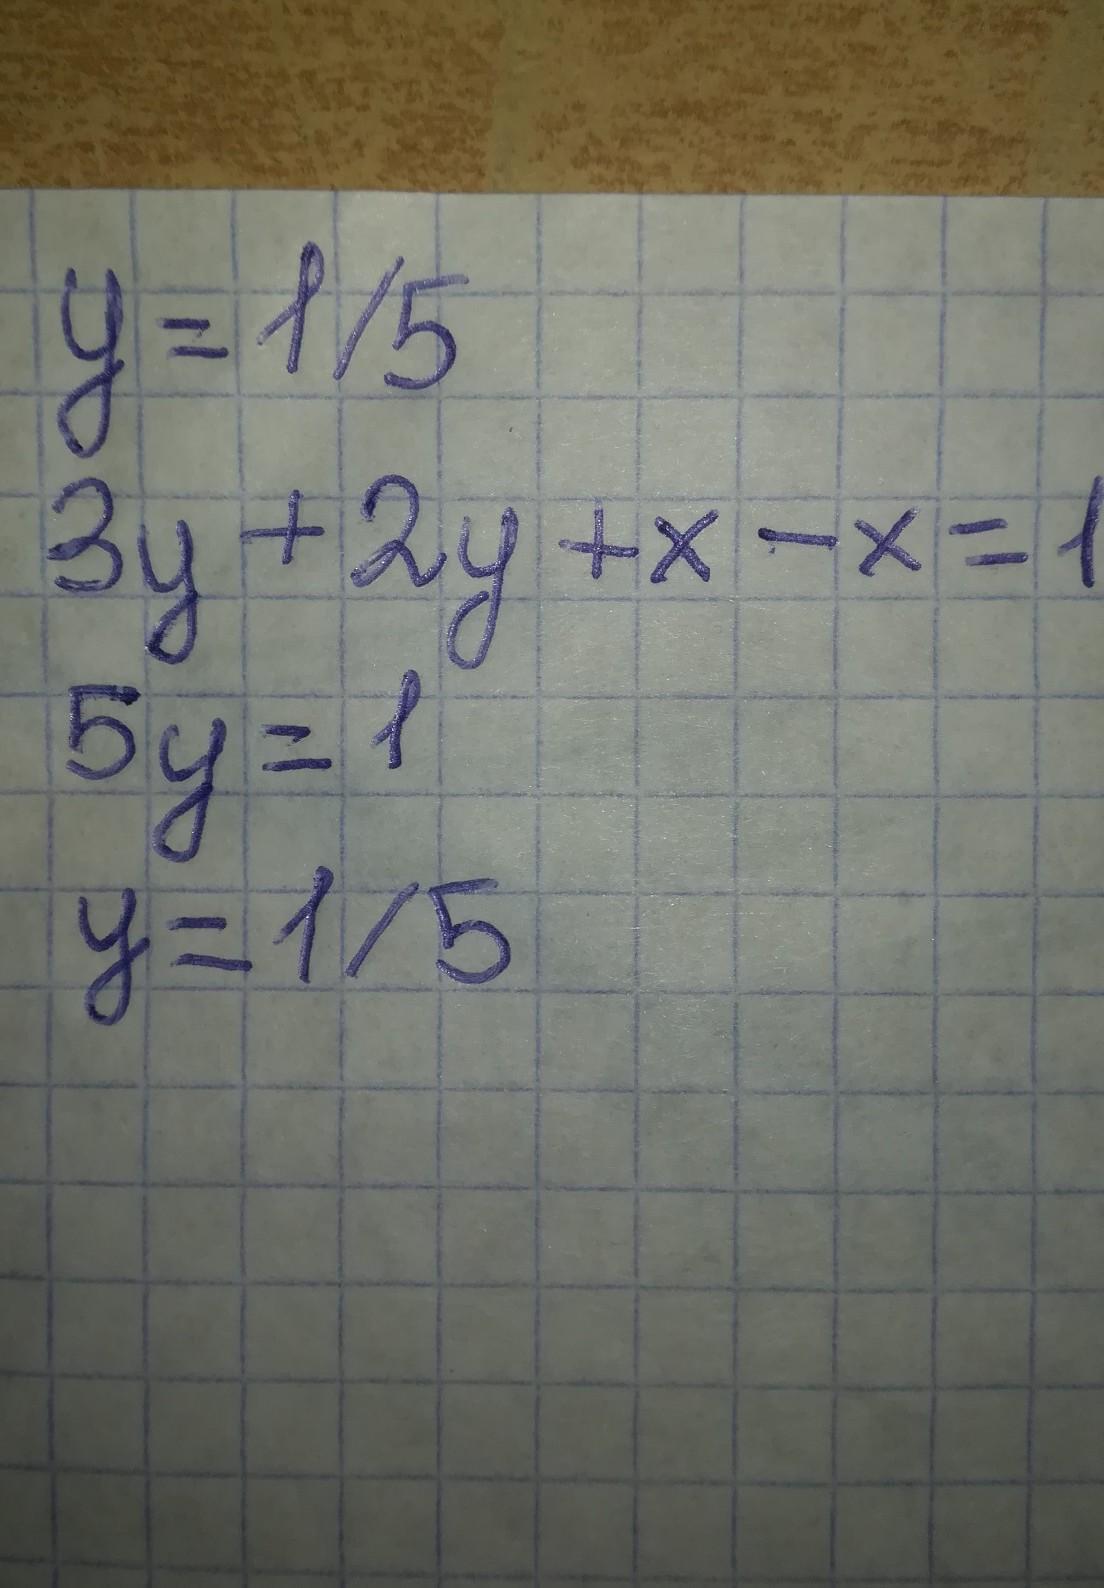 y = 1/5
3y + 2y + x - x = 1
5y = 1
y = 1/5